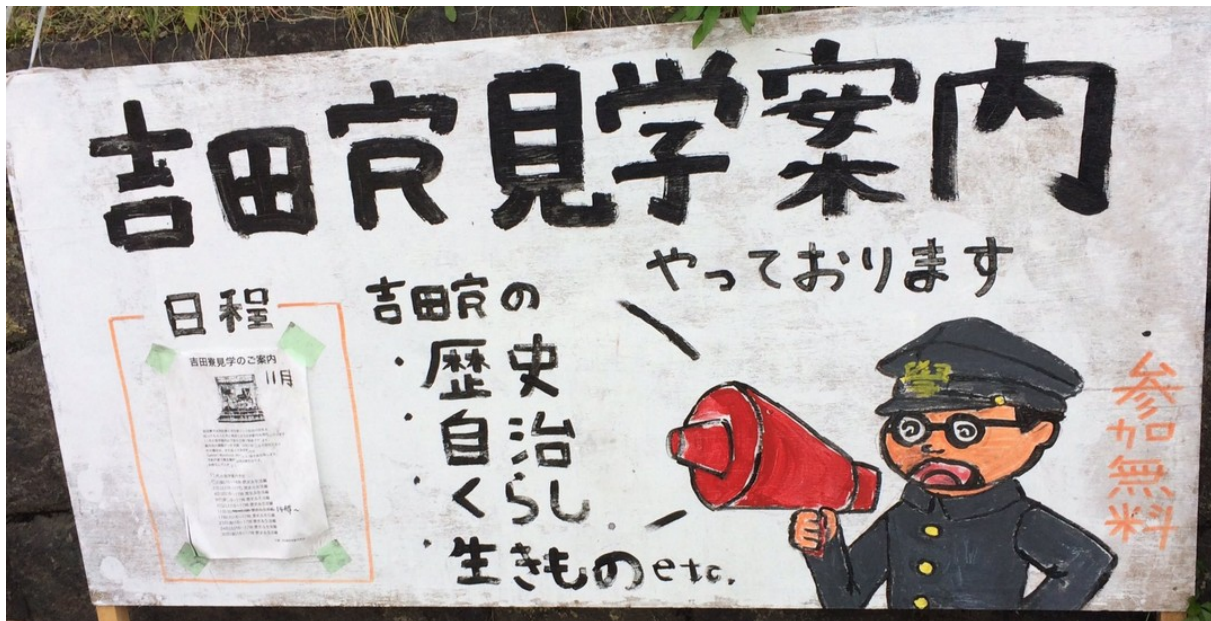 吉田寮見学案内
やっております
日程
吉田寮見学のご案内
11月
14時~
吉田寮の
・歴史
・自治
・くらし
・生きもの etc.
參加無料
學